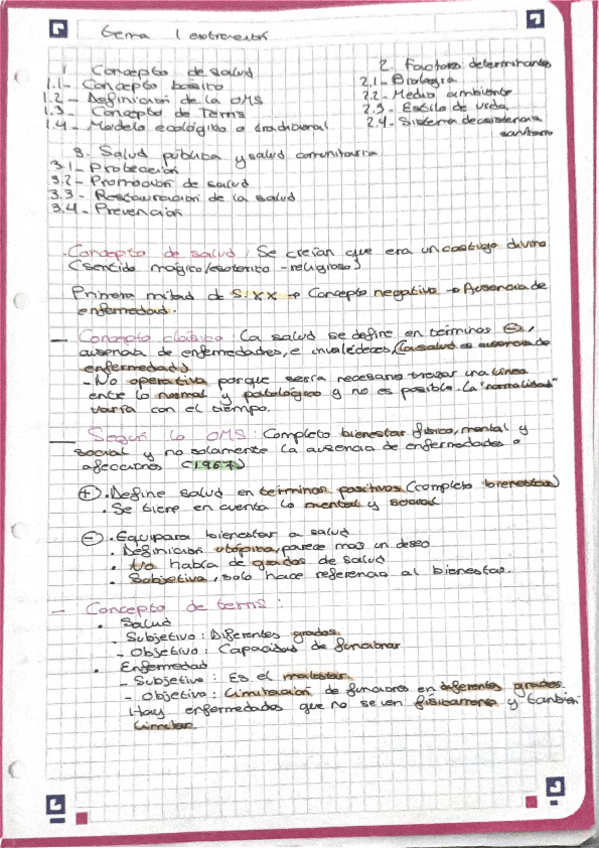 tema 1
1. Concepto de salud
1.1- Concepto básico
1.2- Definición de la OMS
1.3- Concepto de Terris
1.4- Modelo ecológico o tradicional
2. Factores determinantes
2.1- Biología
2.2- Medio ambiente
2.3- Estilo de vida
2.4- Sistema de asistencia sanitaria
3. Salud pública y salud comunitaria
3.1- Protección
3.2- Promoción de salud
3.3- Restauración de la salud
3.4- Prevención
·Concepto de salud: Se creían que era un castigo divino
(sentido mágico/esotérico-religioso)
Primera mitad de S.XX → Concepto negativo → Ausencia de
enfermedad.
— Concepto clásico: La salud se define en términos ⊖,
ausencia de enfermedades, e invalideces, (La salud es ausencia de
enfermedad)
- No operativa porque sería necesario trazar una línea
entre lo normal y patológico y no es posible. La "normalidad"
varía con el tiempo.
— Según la OMS: Completo bienestar físico, mental y
social y no solamente la ausencia de enfermedades o
afecciones (1967)
⊕ · Define salud en términos positivos (completo bienestar)
· Se tiene en cuenta lo mental y social
⊖ · Equipara bienestar a salud
· Definición utópica, parece mas un deseo
· No había de grados de salud
· Subjetiva, solo hace referencia al bienestar.
— Concepto de terris:
· Salud
- Subjetivo: Diferentes grados
- Objetivo: Capacidad de funcionar
· Enfermedad
- Subjetiva: Es el malestar
- Objetiva: Limitación de funciones en diferentes grados
Hay enfermedades que no se ven físicamente y también
limitan